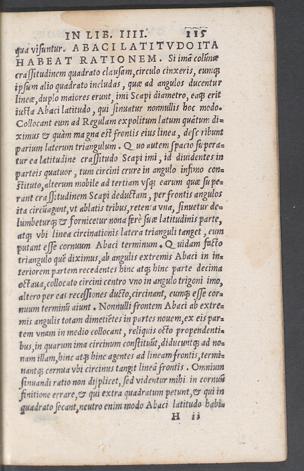 IN LIB. IIII. 115
qua visuntur. ABACI LATITVDO ITA
HABEAT RATIONEM. Si imã columnæ
crassitudinem quadrato clausam, circulo cinxeris, eumq;
ipsum alio quadrato includas, quæ ad angulos ducentur
lineæ, duplo maiores erunt imi Scapi diametro, eaq; erit
iusta Abaci latitudo, qui sinuatur nonnullis hoc modo.
Collocant eum ad Regulam expolitum latum quãtum di-
ximus & quàm magna est frontis eius linea, describunt
parium laterum triangulum. Quo autem spacio supera-
tur ea latitudine crassitudo Scapi imi, id diuidentes in
parteis quatuor, tum circini crure in angulo infimo con-
stituto, alterum mobile ad tertiam vsq; earum quæ supe-
rant crassitudinem Scapi deductam, per frontis angulos
ita circũagunt, vt ablatis tribus, retenta vna, sinuetur de-
lumbeturq; & fornicetur nona ferè suæ latitudinis parte,
atq; vbi linea circinationis latera trianguli tanget, eum
putant esse cornuum Abaci terminum. Quidam facto
triangulo quẽ diximus, ab angulis extremis Abaci in in-
teriorem partem recedentes hinc atq; hinc parte decima
octaua, collocato circini centro vno in angulo trigoni imo,
altero per eas recessiones ducto, circinant, eumq; esse cor-
nuum terminũ aiunt. Nonnulli frontem Abaci ab extre-
mis angulis totam dimetiẽtes in partes nouem, ex eis par-
tem vnam in medio collocant, reliquis octo propendenti-
bus, in quarum ima circinum constituũt, diducuntq; ad no-
nam illam, hinc atq; hinc agentes ad lineam frontis, termi-
nantq; cornua vbi circinus tangit lineã frontis. Omnium
sinuandi ratio non displicet, sed videntur mihi in cornuũ
finitione errare, & qui extra quadratum petunt, & qui in
quadrato secant, neutro enim modo Abaci latitudo habi-
H ii